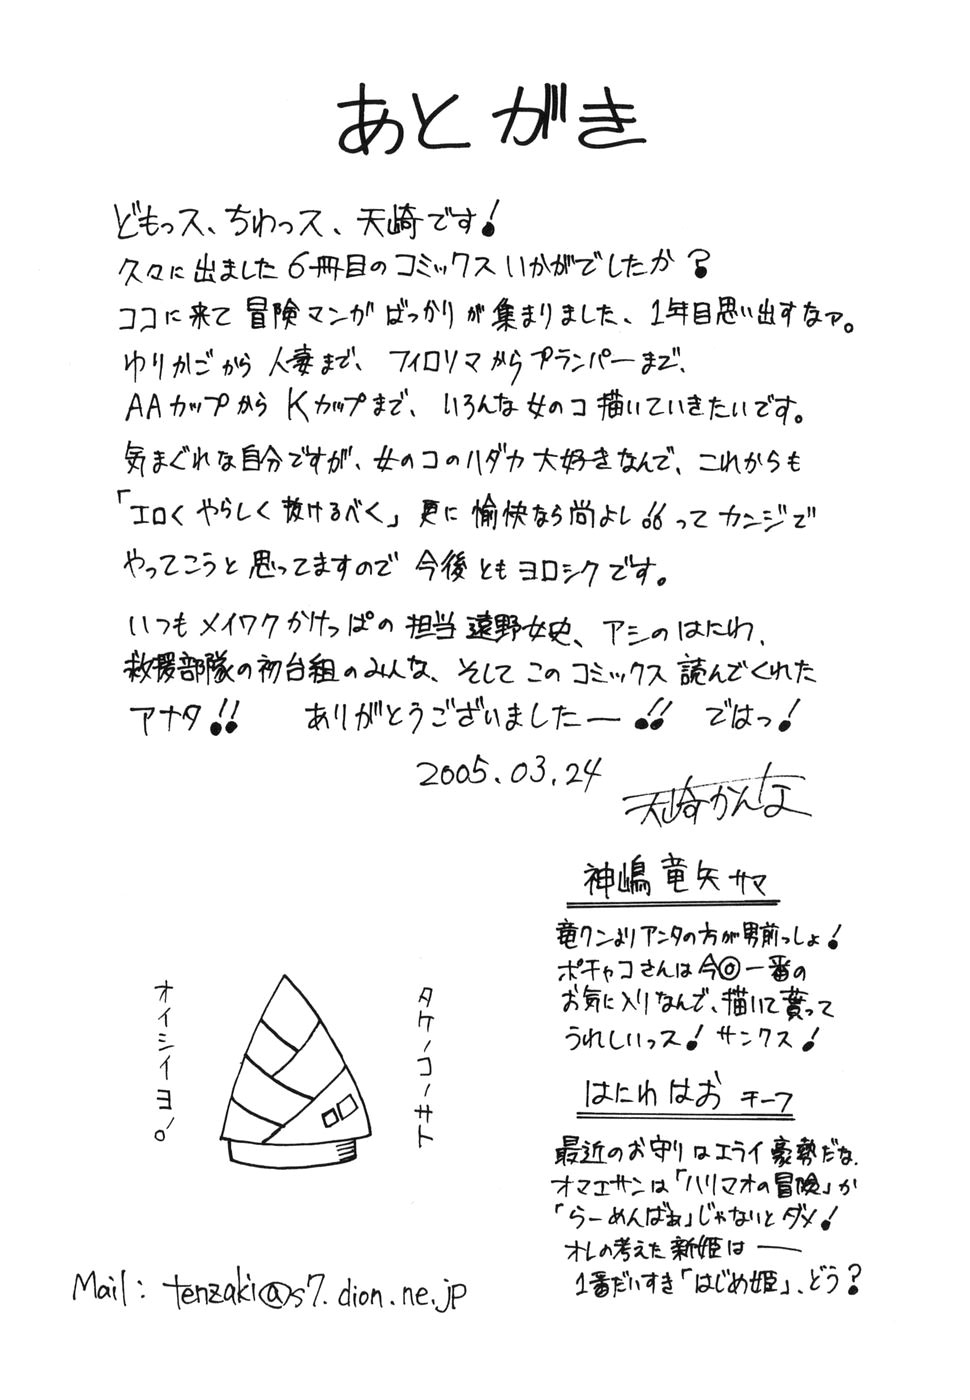 あとがき
どもっス、ちわっス、天崎です!
久々に出ました6冊目のコミックスいかがでしたか?
ココに来て冒険マンガばっかりが集まりました、1年目思い出すなァ。
ゆりかごから人妻まで、フィロリマからプランパーまで、
AAカップからKカップまで、いろんな女のコ描いていきたいです。
気まぐれな自分ですが、女のコのハダカ大好きなんで、これからも
「エロくやらしく抜けるべく」更に愉快なら尚よし!!ってカンジで
やってこうと思ってますので今後ともヨロシクです。
いつもメイワクかけっぱの担当遠野女史、アシのはにわ、
救援部隊の初台組のみんな、そしてこのコミックス読んでくれた
アナタ!! ありがとうございましたー!! ではっ!
2005.03.24
天崎かんな
神嶋竜矢サマ
竜クンよりアンタの方が男前っしょ!
ポチャコさんは今◎一番の
お気に入りなんで、描いて貰って
うれしいっス!サンクス!
はにわはお チーフ
最近のお守りはエライ豪勢だな、
オマエサンは「ハリマオの冒険」か
「らーめんばぁ」じゃないとダメ!
オレの考えた新姫は―
1番だいすき「はじめ姫」、どう?
タケノコノサト
オイシイヨ。
Mail: tenzaki@s7.dion.ne.jp